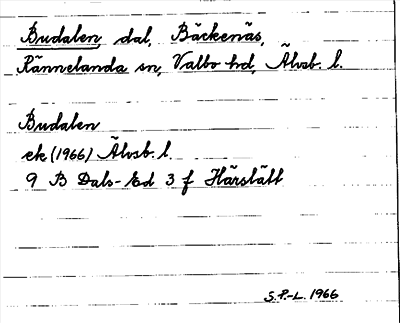 Budalen, dal, Bäckenäs,
Rännelanda sn, Valbo hd, Älvsb. l.
Budalen
ek (1966) Älvsb. l.
9 B Dals-Ed 3 f Härslätt
S.P.-L. 1966